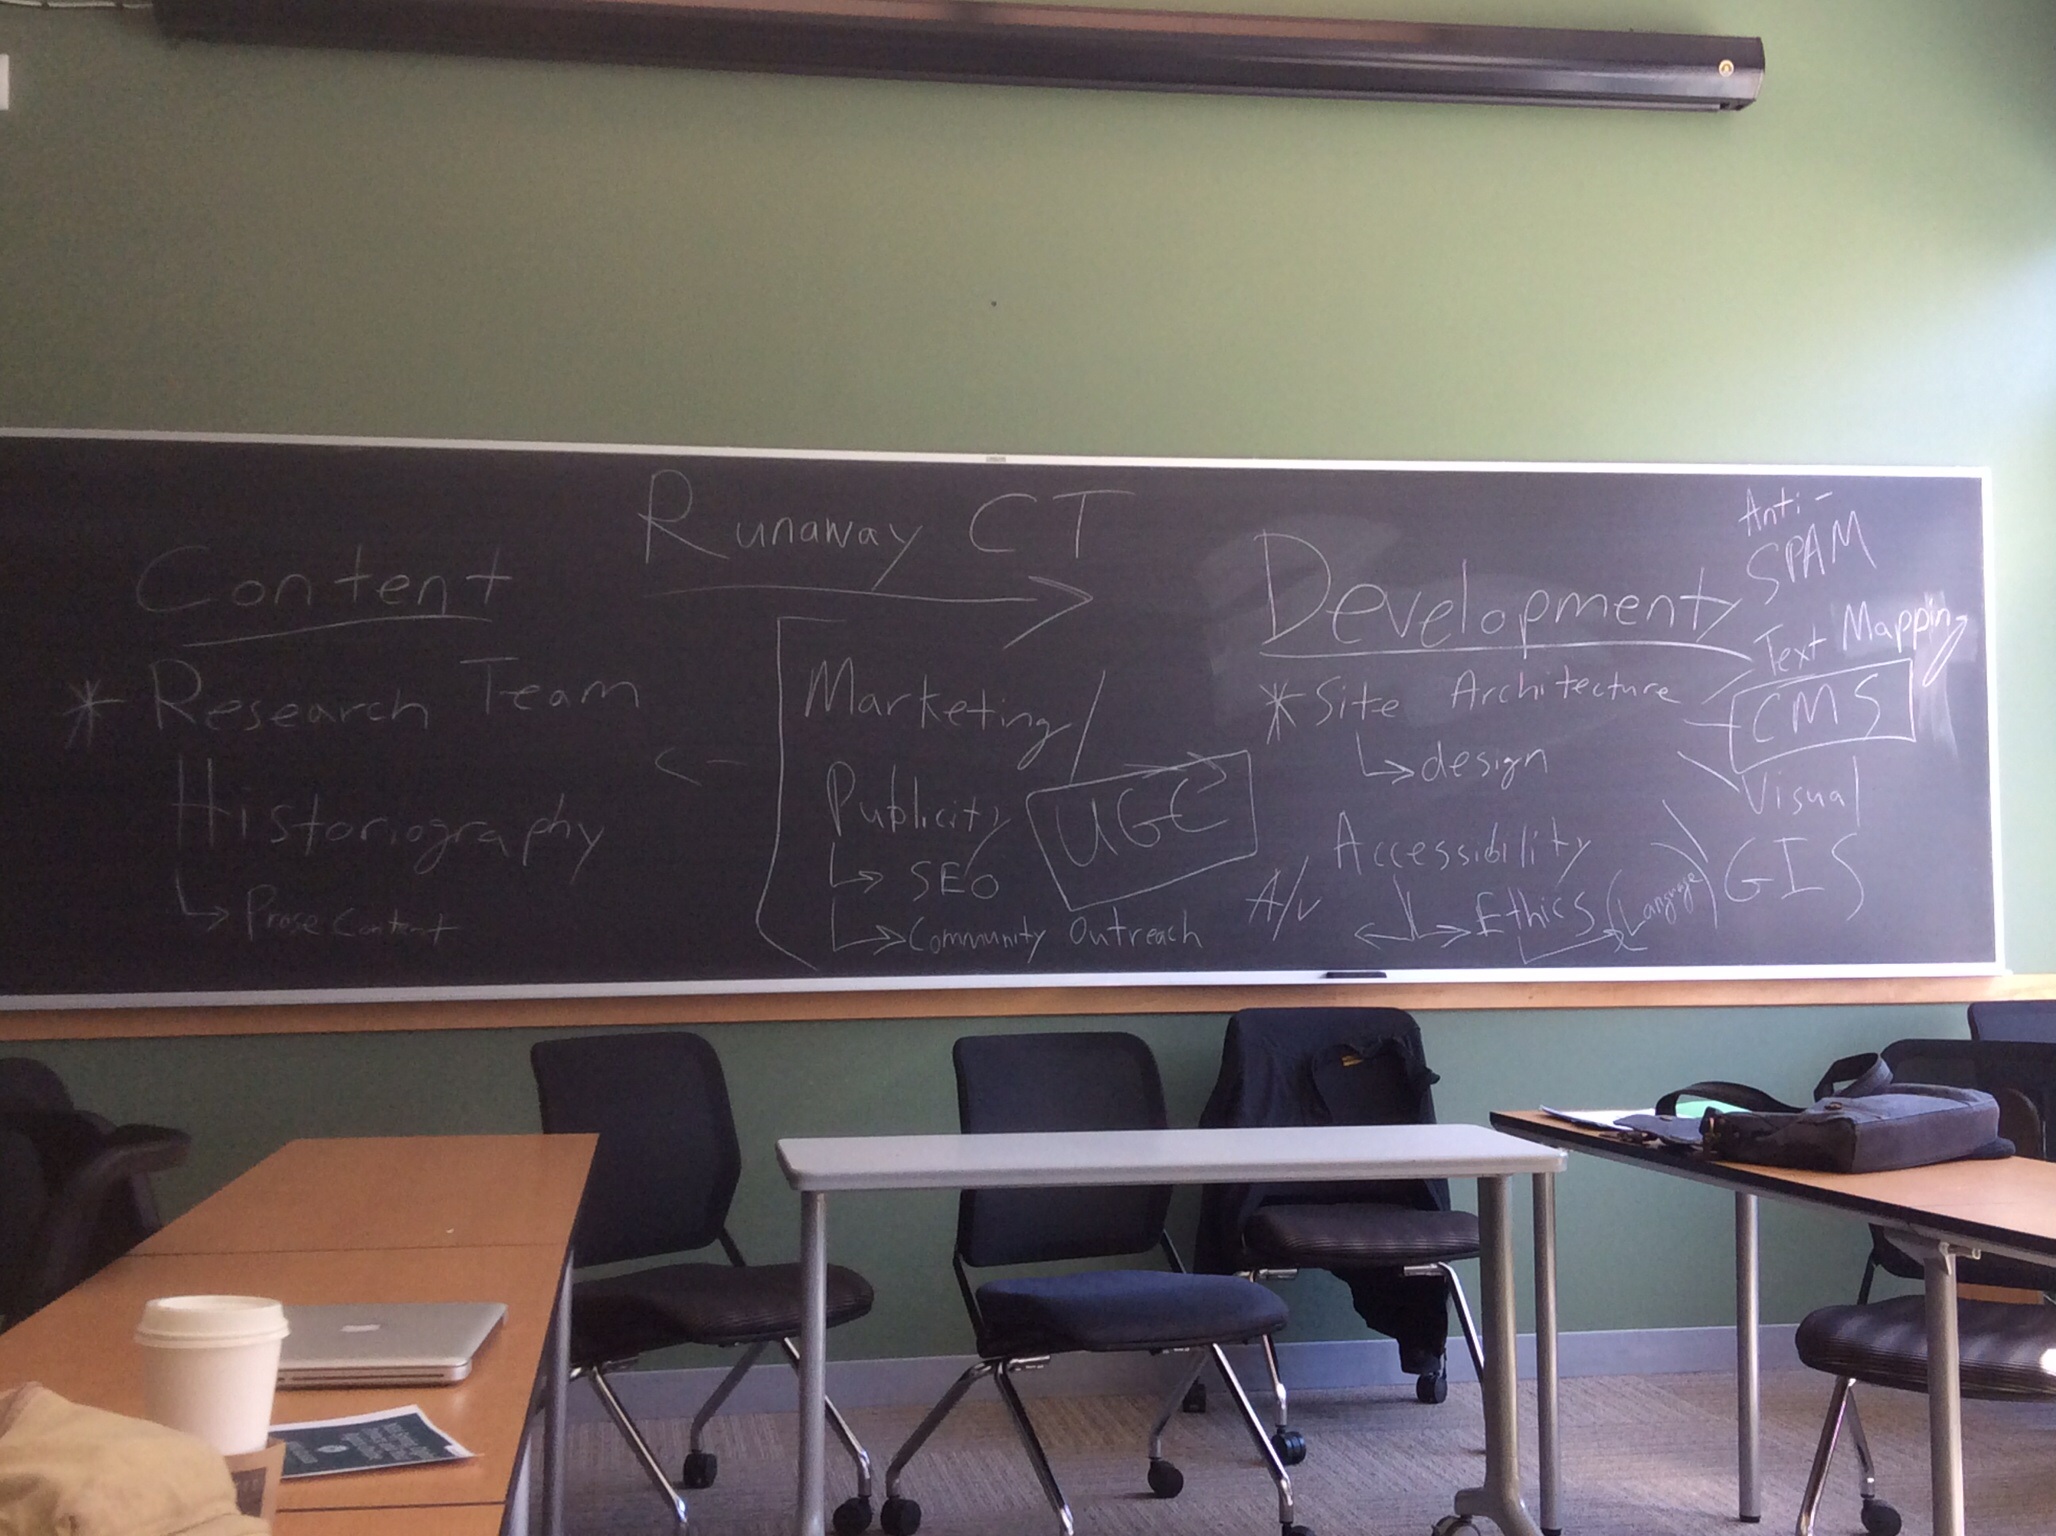 Runaway CT
Content
* Research Team
Historiography
Prose Content
Marketing/
Publicity
SEO
Community Outreach
UGC
Development
* Site Architecture
design
Accessibility
A/V
Ethics (Language)
Anti-
SPAM
Text Mapping
CMS
Visual
GIS